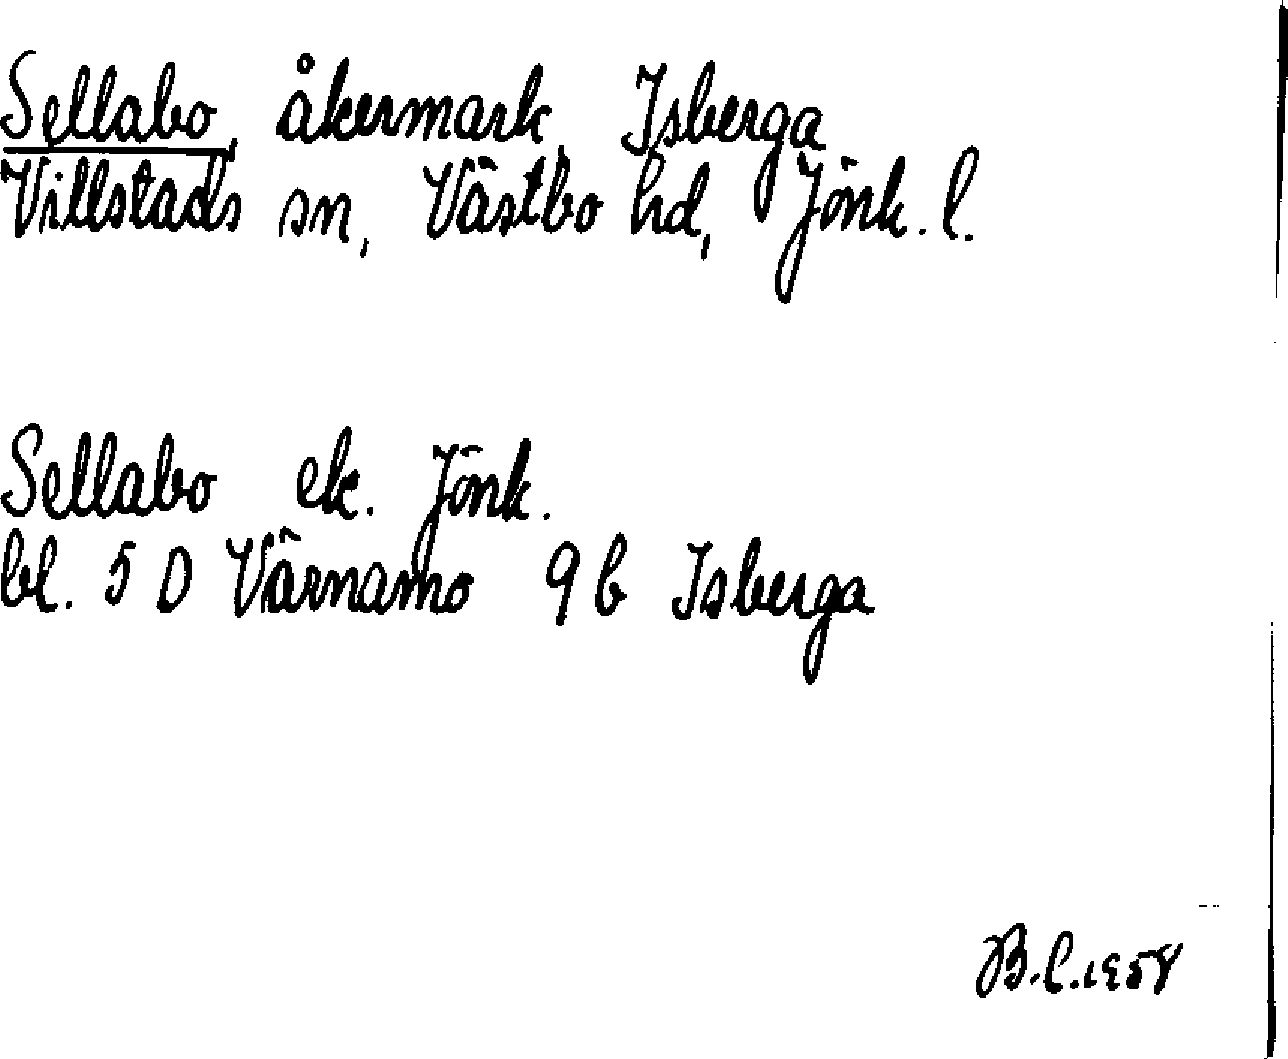 Sellabo, åkermark Isberga
Villstads sn, Västbo hd, Jönk. l.
Sellabo ek. Jönk.
bl. 5 D Värnamo 9 b Isberga
B.l. 1958